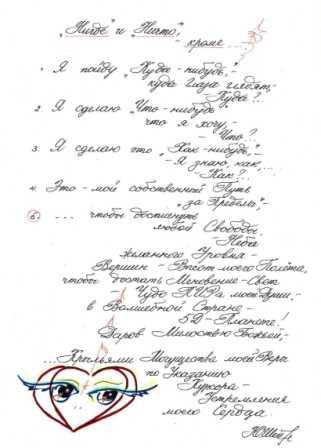 „Нигде" и „Никто",
- кроме ....
1. Я пойду „Куда-нибудь",-
куда глаза глядят,-
- Куда?..
2. Я сделаю „Что-нибудь"
что я хочу,-
- Что?..
3. Я сделаю это „Как-нибудь",-
- Я знаю, как, ...
- Как?..
4. Это - мой собственный Путь
„за Пределы",-
5. ... чтобы достигнуть
любой Свободы,-
- Неба
желанного Уровня -
Вершин - Высот моего Полёта,
чтобы достать Мгновение - Свет
Чудо моей Души,-
в Волшебной Стране -
5D - Планете!
Даров Милостью Божьей,-
...Крыльями Могущества моей Веры
по Указанию
Курсора -
Устремления
моего Сердца.